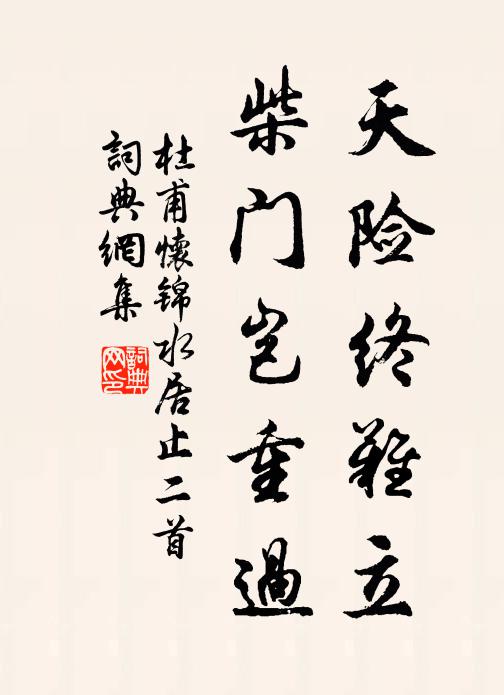 天险终難立
柴门岂重過
杜甫懷锦水居止二首
詞典網集
詞典
网印